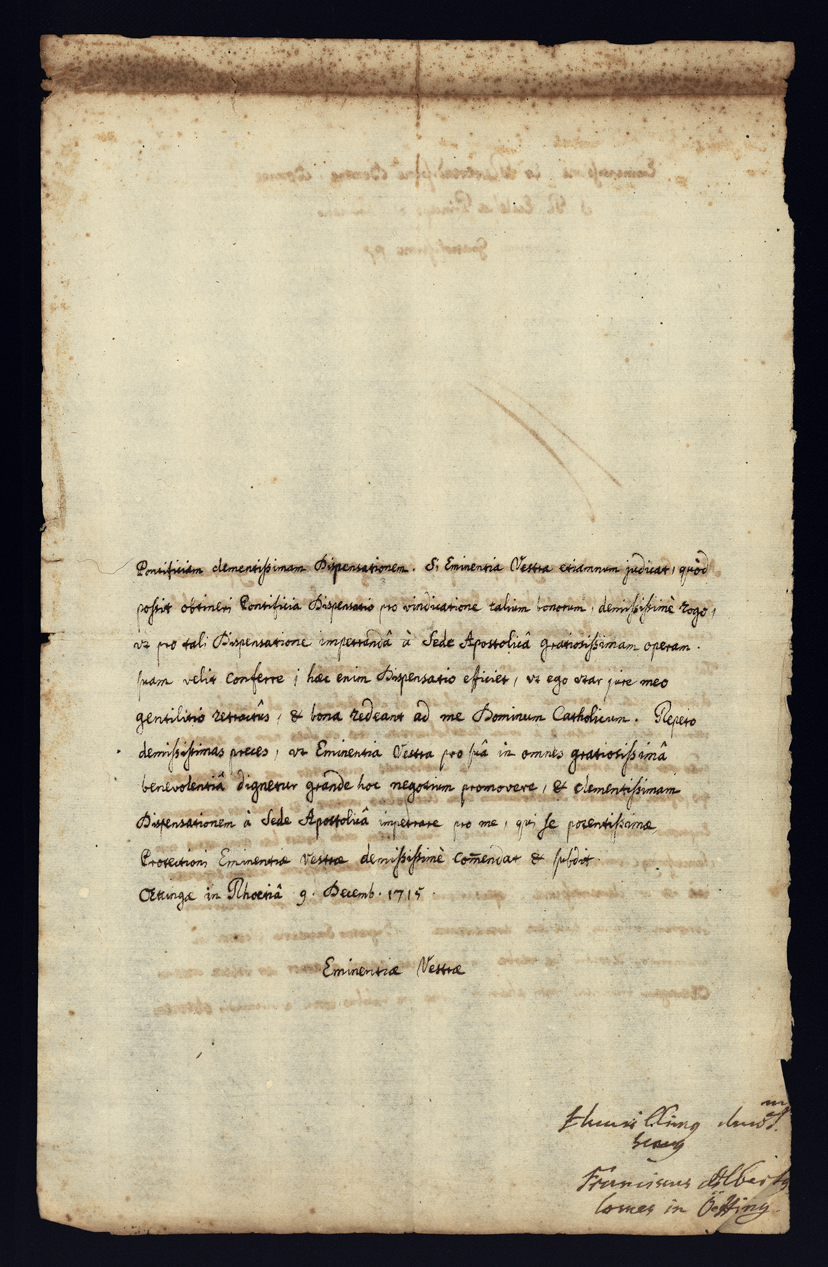 Pontificiam clementissimam Dispensationem. Si Eminentia Vestra etiamnum judicat, quòd
possit obtineri Pontificia Dispensatio pro vindicatione talium bonorum, demississimè rogo,
ut pro tali Dispensatione impetrandâ à Sede Apostolicâ gratiosissimam operam
suam velit conferre; hæc enim Dispensatio efficiet, ut ego utar jure meo
gentilitio retractûs, & bona redeant ad me Dominum Catholicum. Repeto
demississimas preces, ut Eminentia Vestra pro suâ in omnes gratiosissimâ
benevolentiâ dignetur grande hoc negotium promovere, & clementissimam
Dispensationem à Sede Apostolicâ impetrare pro me, qui se potentissimæ
Protectioni Eminentiæ Vestræ demississimè com̄endat & subdit.
Œttingæ in Rhœtiâ 9. Decemb. 1715.
Eminentiæ Vestræ
Franciscus Albertus
Comes in Öetting